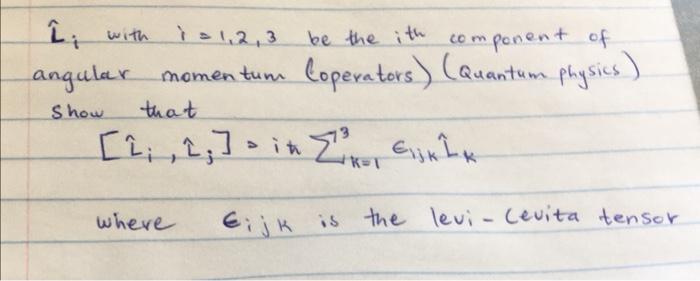 L̂i with i = 1,2,3 be the ith component of
angular momentum (operators) (Quantum physics)
Show that
[L̂i , L̂j] = iħ Σ³k=1 ϵijk L̂k
where ϵijk is the levi - Cevita tensor